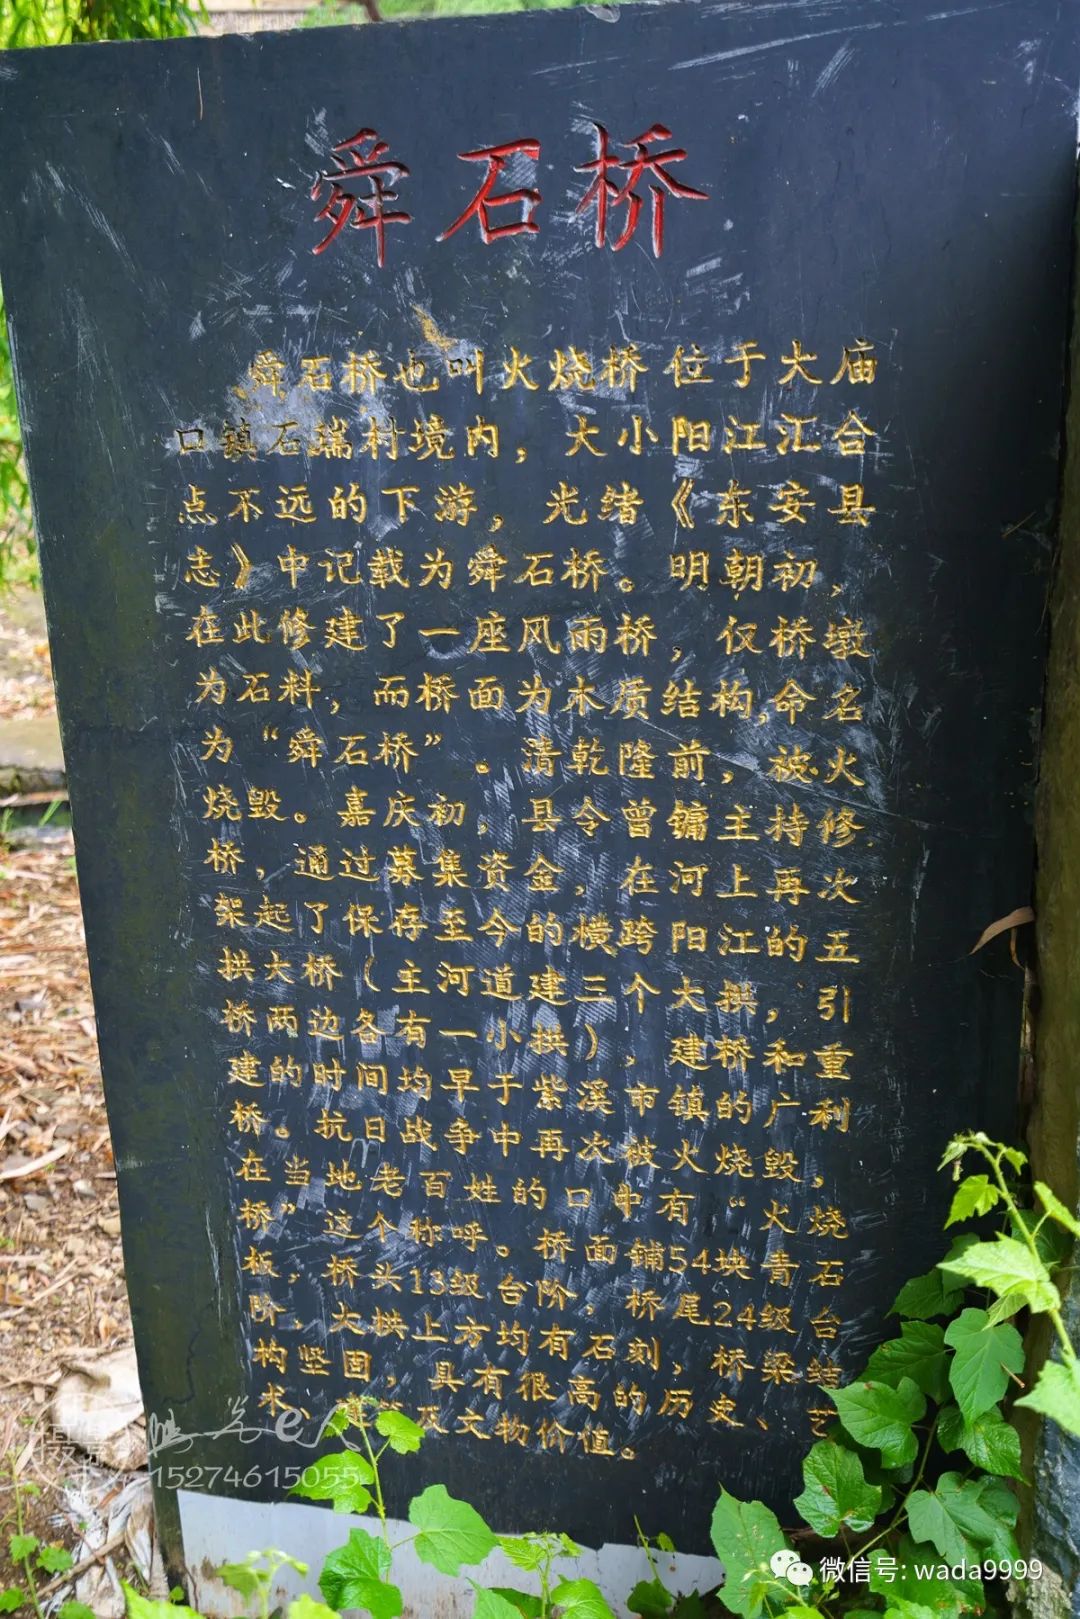 舜石桥
舜石桥也叫火烧桥位于大庙
口镇石瑞村境内，大小阳江汇合
点不远的下游，光绪《东安县
志》中记载为舜石桥。明朝初，
在此修建了一座风雨桥，仅桥墩
为石料，而桥面为木质结构,命名
为“舜石桥”。清乾隆前，被火
烧毁。嘉庆初，县令曾镛主持修
桥，通过募集资金，在河上再次
架起了保存至今的横跨阳江的五
拱大桥（主河道建三个大拱，引
桥两边各有一小拱），建桥和重
建的时间均早于紫溪市镇的广利
桥。抗日战争中再次被火烧毁，
在当地老百姓的口中有“火烧
桥”这个称呼。桥面铺54块青石
板，桥头13级台阶，桥尾24级台
阶，大拱上方均有石刻，桥梁结
构坚固，具有很高的历史、艺
术、及文物价值。
15274615055
微信号: wada9999